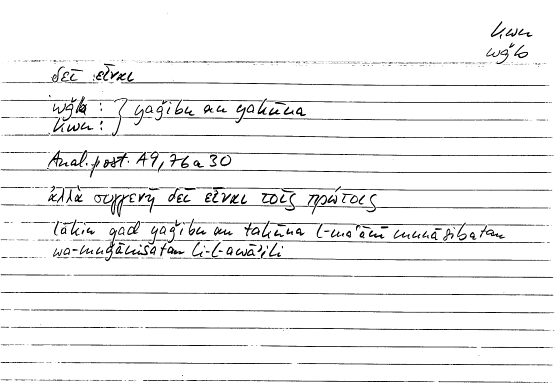 kwn
wǧb
δεῖ εἶναι
wǧb : } yaǧibu an yakūna
kwn :
Anal. post. A9, 76a30
ἀλλὰ συγγενῆ δεῖ εἶναι τοῖς πρώτοις
lākin qad yaǧibu an takūna l-maʿānī munāsibatan
wa-muǧānisatan li-l-awāʾili